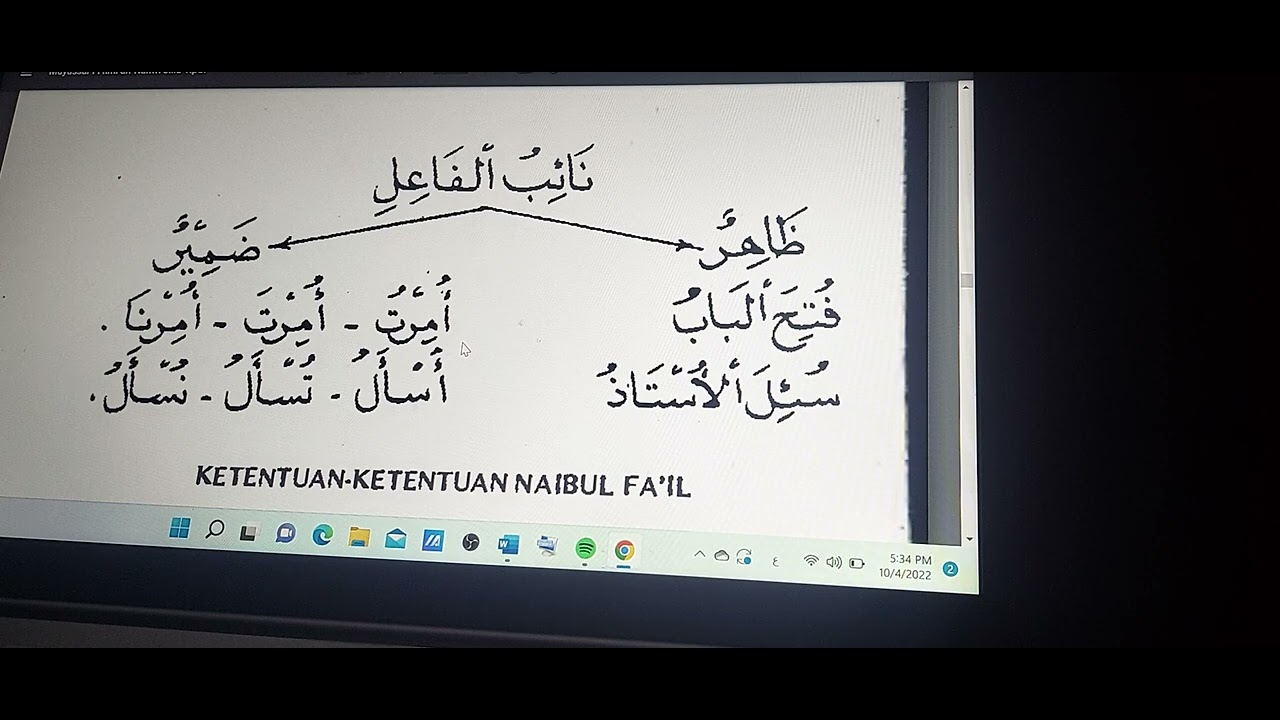 نَائِبُ ٱلفَاعِلِ
ظَاهِرٌ ضَمِيْرٌ
فُتِحَ ٱلبَابُ أُمِرْتُ - أُمِرْتَ - أُمِرْنَا .
سُئِلَ ٱلأُسْتَاذُ أُسْأَلُ - تُسْأَلُ - نُسْأَلُ .
KETENTUAN-KETENTUAN NAIBUL FA'IL
ع 5:34 PM
10/4/2022 2